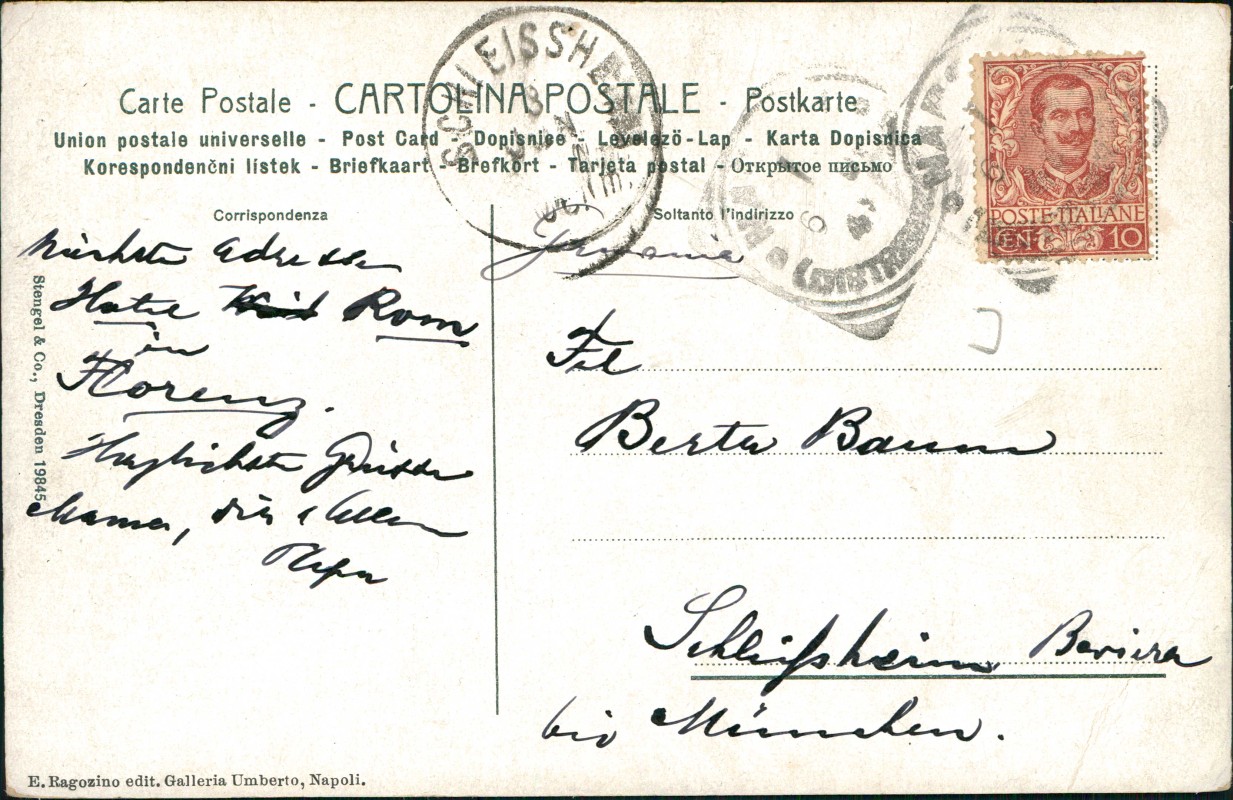 Carte Postale - CARTOLINA POSTALE - Postkarte
Union postale universelle - Post Card - Dopisnice - Levelező-Lap - Karta Dopisnica
Korespondenčni listek - Briefkaart - Brefkort - Tarjeta postal - Открытое письмо
SCHLEISSHEIM
POSTE·ITALIANE
CENT. 10
Corrispondenza
Nächste Adresse
Hotel Rom
in
Florenz.
Herzlichste Grüsse
Mama, dir & Allen
Papa
Soltanto l'indirizzo
Germania
Frl
Berta Baum
Schleissheim Baviera
bei München.
Stengel & Co., Dresden 19845
E. Ragozino edit. Galleria Umberto, Napoli.